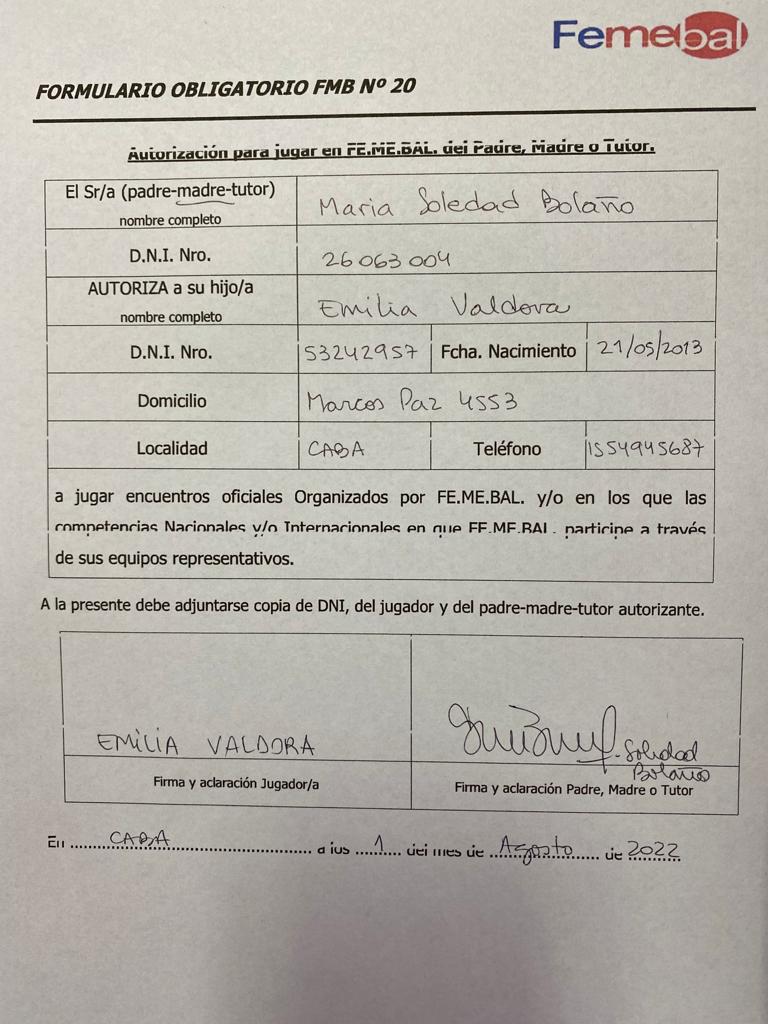 Femebal
FORMULARIO OBLIGATORIO FMB Nº 20
Autorización para jugar en FE.ME.BAL. del Padre, Madre o Tutor.
El Sr/a (padre-madre-tutor)
nombre completo
Maria Soledad Bolaño
D.N.I. Nro.
26063004
AUTORIZA a su hijo/a
nombre completo
Emilia Valdora
D.N.I. Nro.
53242957
Fcha. Nacimiento
21/05/2013
Domicilio
Marcos Paz 4553
Localidad
CABA
Teléfono
1554945687
a jugar encuentros oficiales Organizados por FE.ME.BAL. y/o en los que las
competencias Nacionales y/o Internacionales en que FE.ME.BAL. participe a través
de sus equipos representativos.
A la presente debe adjuntarse copia de DNI, del jugador y del padre-madre-tutor autorizante.
EMILIA VALDORA
Firma y aclaración Jugador/a
Soledad
Bolaño
Firma y aclaración Padre, Madre o Tutor
En ...... CABA ...... a los ... 1 ... del mes de ... Agosto ... de 2022